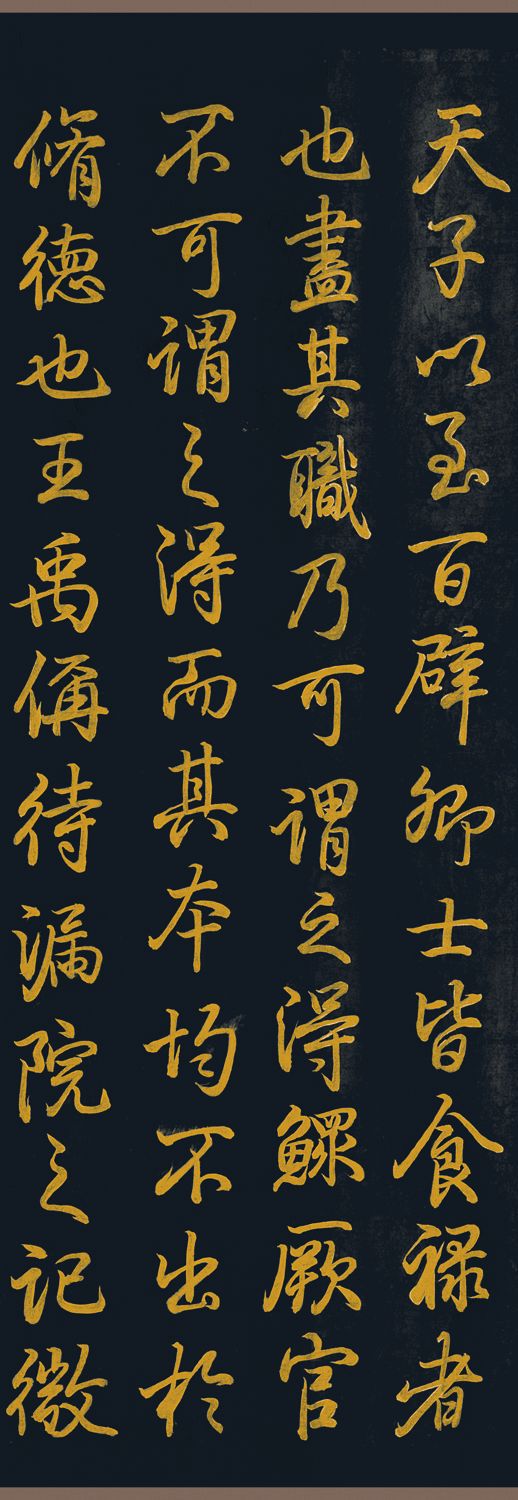 天子以至百辟卿士皆食祿者
也盡其職乃可謂之得鰥厥官
不可謂之得而其本均不出於
脩德也王禹偁待漏院之記微